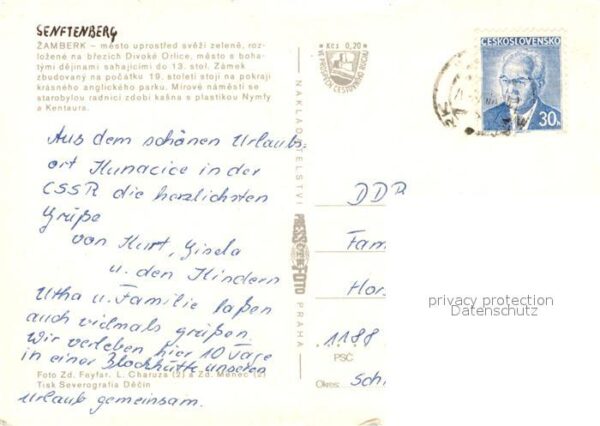 SENFTENBERG
ŽAMBERK – město uprostřed svěží zeleně, roz-
ložené na březích Divoké Orlice, město s boha-
tými dějinami sahajícími do 13. stol. Zámek
zbudovaný na počátku 19. století stojí na pokraji
krásného anglického parku. Mírové náměstí se
starobylou radnicí zdobí kašna s plastikou Nymfy
a Kentaura.
Aus dem schönen Urlaubs-
ort Kunacice in der
CSSR die herzlichsten
Grüße
von Kurt, Gisela
u. den Kindern
Utha u. Familie laßen
auch vidmals grüßen
Wir verleben hier 10 Tage
in einer Blockhütte unseren
Foto Zd. Feyfar, L. Charuza (2) a Zd. Menec (2)
Tisk Severografia Děčín
Urlaub gemeinsam.
Kčs 0,20
VE PROSPĚCH CESTOVNÍHO RUCHU
NAKLADATELSTVÍ
PRESSFOTO
PRAHA
ČESKOSLOVENSKO
30h
DDR
Fam
Hors
1188
PSČ
Okres:
Sch
privacy protection
Datenschutz